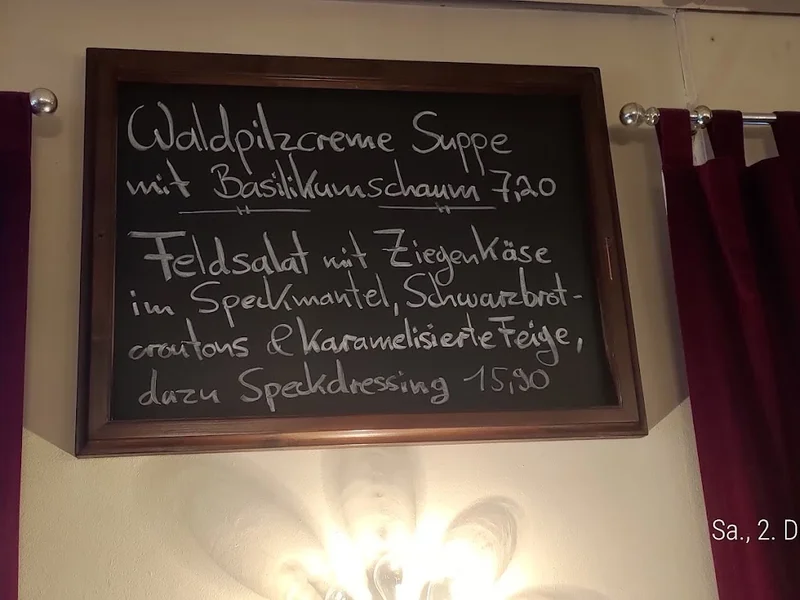 Waldpilzcreme Suppe
mit Basilikumschaum 7,20
Feldsalat mit Ziegenkäse
im Speckmantel, Schwarzbrot-
croutons & karamelisierte Feige,
dazu Speckdressing 15,90
Sa., 2. D